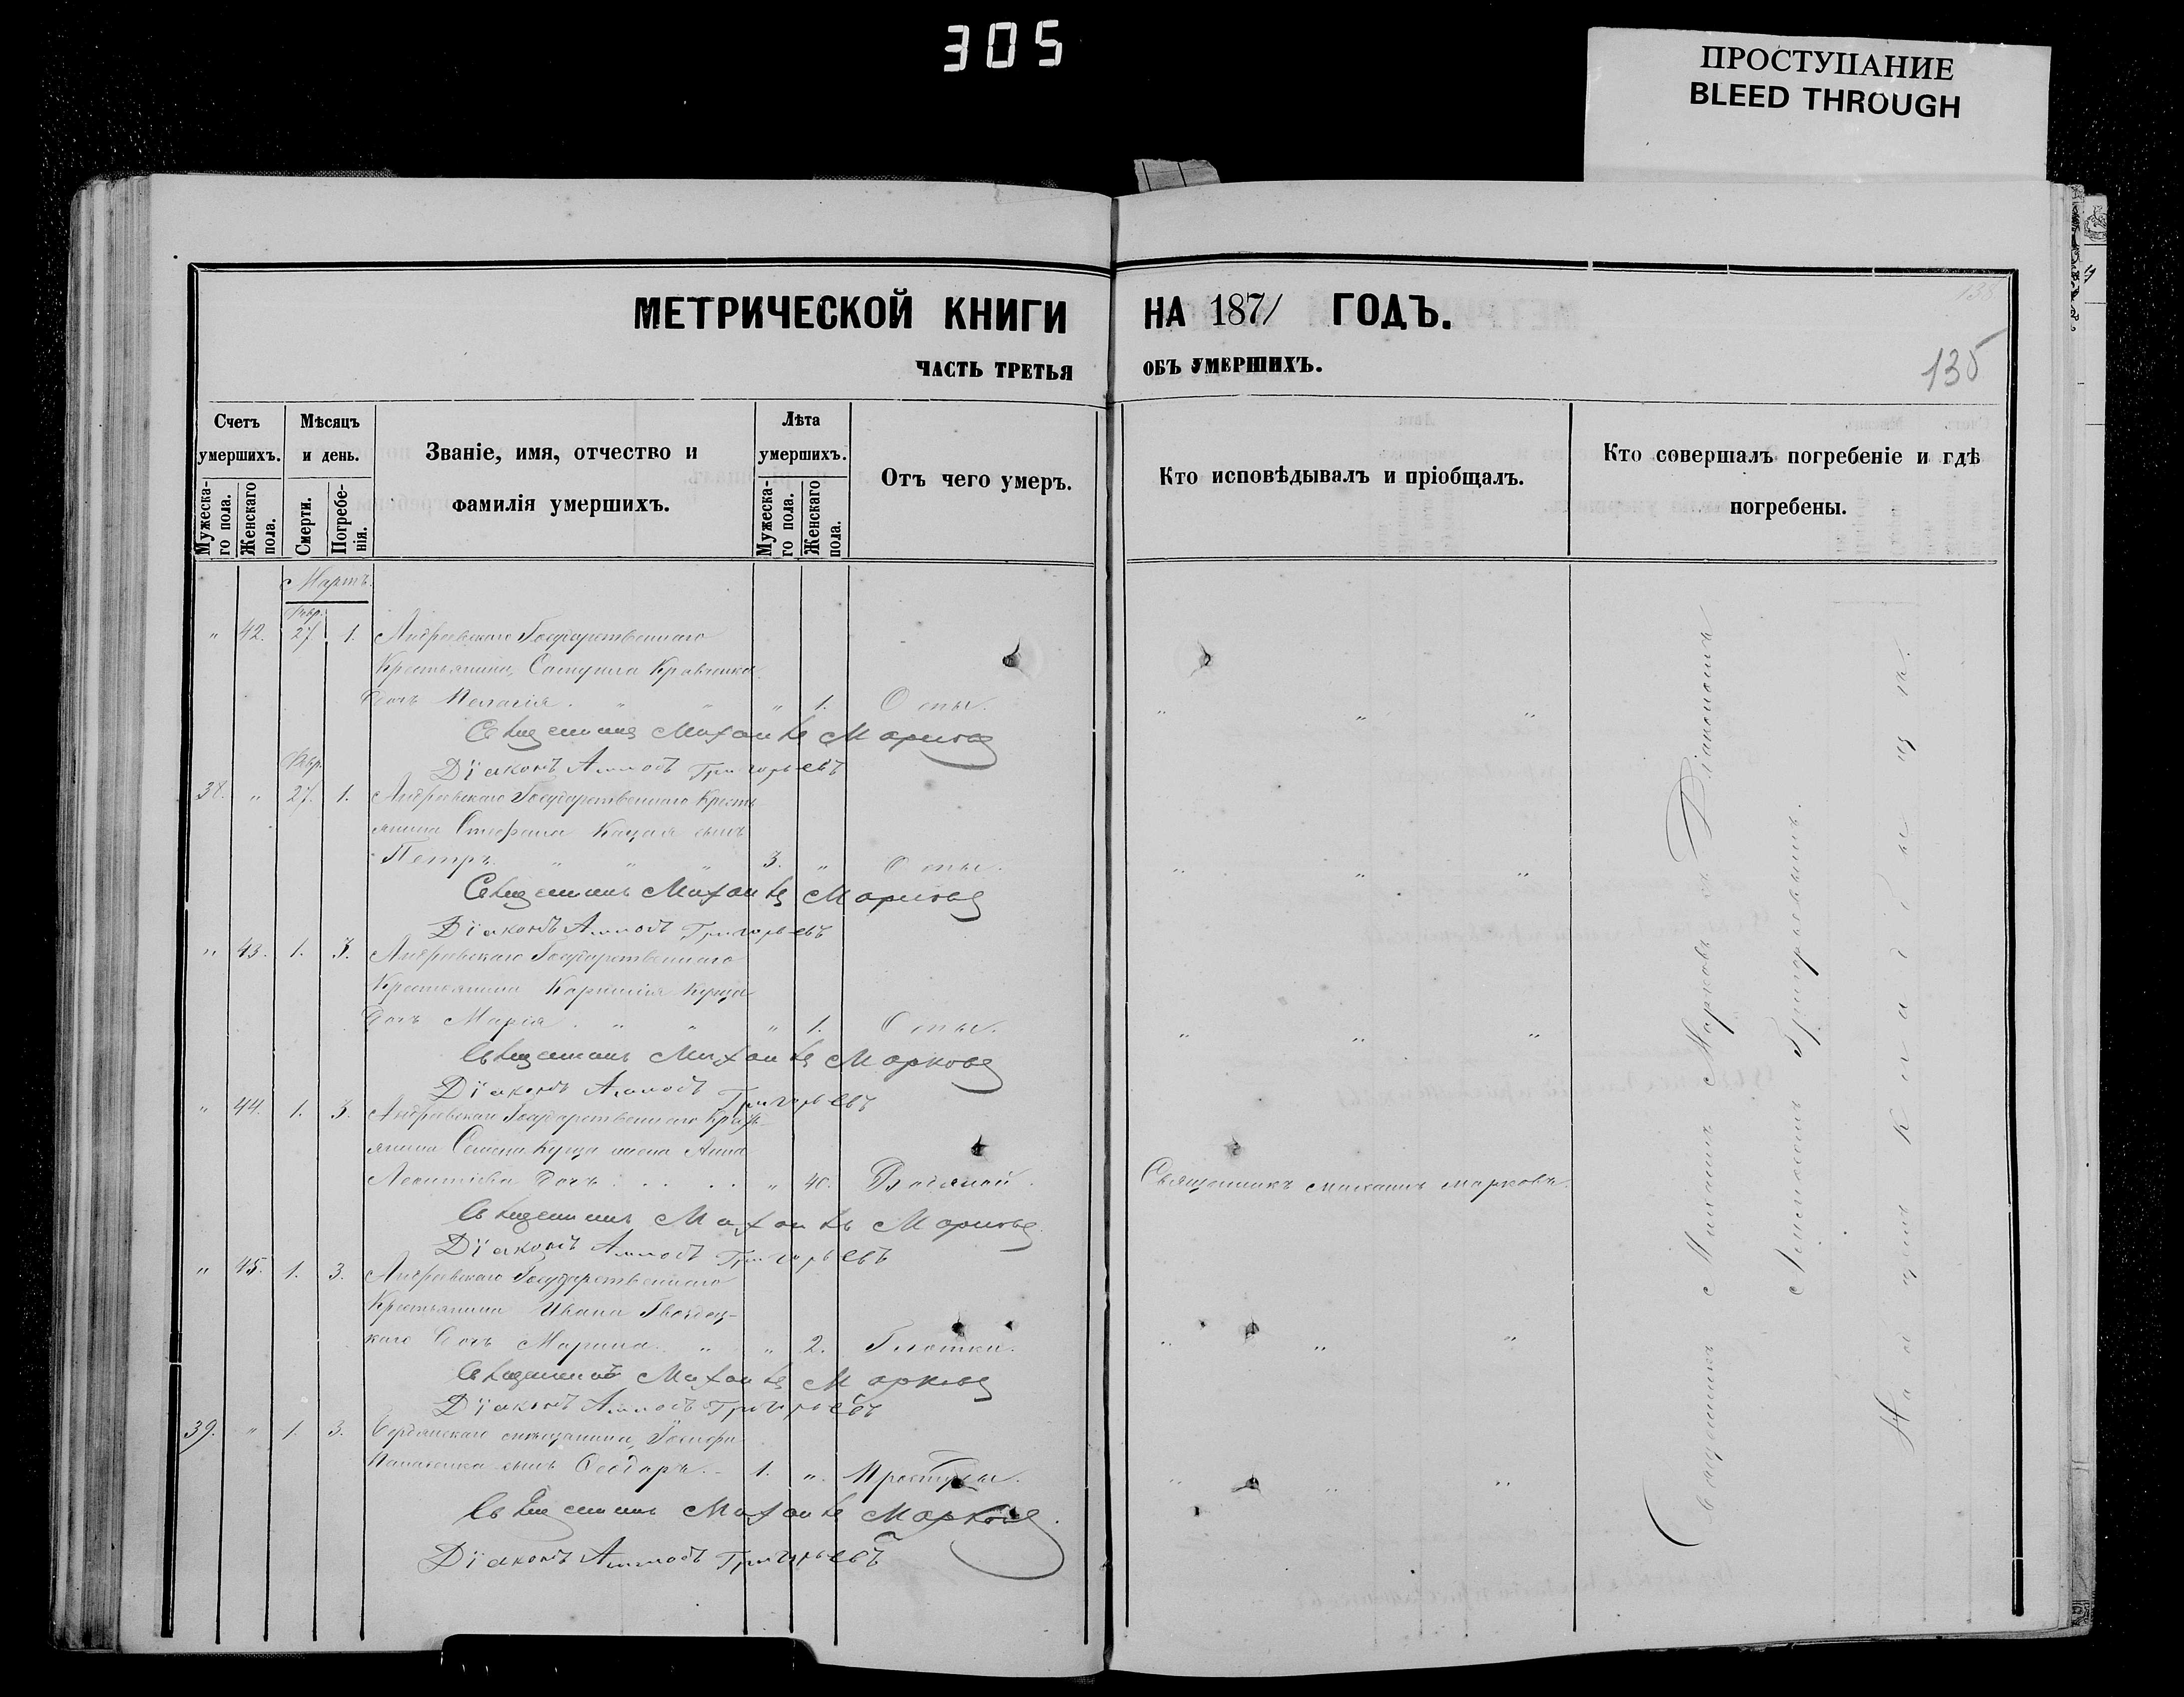 305
ПРОСТУПАНИЕ
BLEED THROUGH
МЕТРИЧЕСКОЙ КНИГИ НА 1871 ГОДЪ.
ЧАСТЬ ТРЕТЬЯ ОБЪ УМЕРШИХЪ.
135
Счетъ умершихъ.
Мужеска-го пола.
Женскаго пола.
Мѣсяцъ и день.
Смерти.
Погребе-нія.
Званіе, имя, отчество и фамилія умершихъ.
Лѣта умершихъ.
Мужеска-го пола.
Женскаго пола.
Отъ чего умеръ.
Кто исповѣдывалъ и пріобщалъ.
Кто совершалъ погребеніе и гдѣ погребены.
Мартъ.
Февр.
" 42. 27 1. Андреевскаго Государственнаго
Крестьянина, Самуила Кравченка
дочь Пелагія . " " " 1. Оспы. " " "
Священникъ Михаилъ Марковъ
Діаконъ Григорьевъ
Февр.
38. " 27. 1. Андреевскаго Государственнаго Кресть
янина Стефана Кацая сынъ
Петръ. " " " 3. " Оспы. " " "
Священникъ Михаилъ Марковъ
Діаконъ Григорьевъ
" 43. 1. 3. Андреевскаго Государственнаго
Крестьянина Корнилія Куща
дочь Марія . " " " 1. Оспы. " " "
Священникъ Михаилъ Марковъ
Діаконъ Григорьевъ
" 44. 1. 3. Андреевскаго Государственнаго Кресть
янина Семена Куща жена Анна
Леонтіева дочь . . . . " 40. Водяной. Священникъ Михаилъ Марковъ.
Священникъ Михаилъ Марковъ
Діаконъ Григорьевъ
" 45. 1. 3. Андреевскаго Государственнаго
Крестьянина Ивана Гвоздец-
каго дочь Марина. " " 2. Глотки. " " "
Священникъ Михаилъ Марковъ
Діаконъ Григорьевъ
39. " 1. 3. Бердянскаго мѣщанина, Іосифа
сынъ Ѳеодоръ. - 1. " Простуды. " " "
Священникъ Михаилъ Марковъ
Діаконъ Григорьевъ
Священникъ Михаилъ Марковъ съ Діакономъ
Григорьевымъ.
На общемъ кладбищѣ.